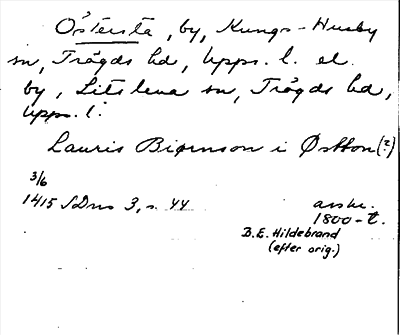 Östersta, by, Kungs-Husby
sn, Trögds hd, Upps. l. el.
by, Litslena sn, Trögds hd,
Upps. l.
Lauris Biørnson i Østbon (?)
3/6
1415 SDns 3, s. 44
avskr.
1800-t.
B.E. Hildebrand
(efter orig.)